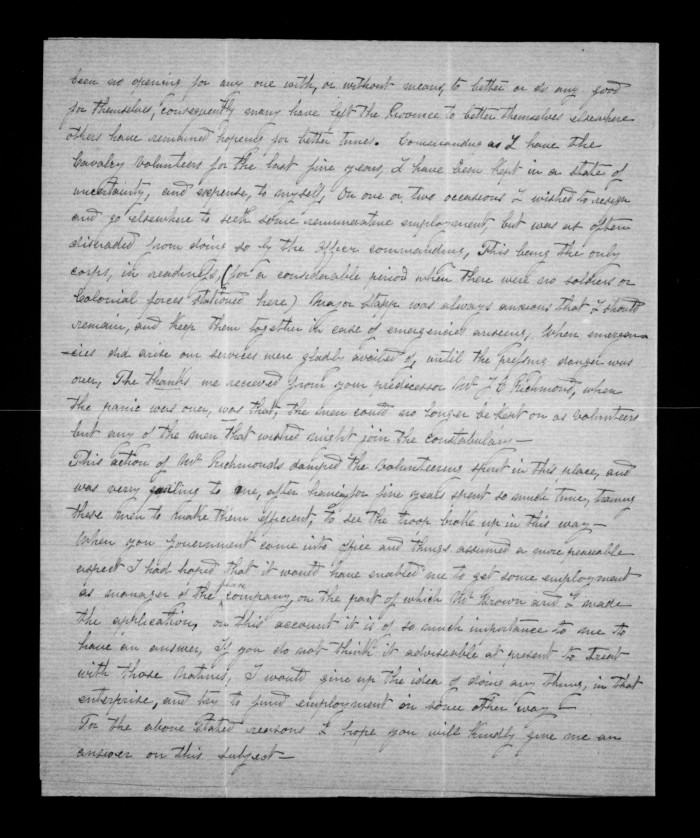 been no opening for any one with, or without means, to better or do any good
for themselves, consequently many have left the Province to better themselves elsewhere
others have remained hopeing for better times. Commanding as I have the
Cavalry Volunteers for the last five years, I have been kept in a state of
uncertainty, and expense, to myself, On one or two occasions I wished to resign
and go elsewhere to seek some remunerative employment, but was as often
disuaded from doing so by the Officer commanding, This being the only
corps, in readiness, (for a considerable period when there were no soldiers or
Colonial forces stationed here) Major Stapp was always anxious that I should
remain, and keep them together in case of emergencies ariseing, When emergen-
-cies did arise our services were gladly availed of, until the pressing danger was
over, The thanks we received from your predecessor Mr J. C. Richmond, when
the panic was over, was that, the men could no longer be kept on as Volunteers
but any of the men that wished might join the constabulary—
This action of Mr Richmonds damped the Volunteering spirit in this place, and
was very galling to me, after haveing for five years spent so much time, training
these men to make them efficient, to see the troop broke up in this way—
When your Government came into office and things assumed a more peaceable
aspect I had hoped that it would have enabled me to get some employment
as manager of the company, on the part of which Mr Brown and I made
the application, on this account it is of so much importance to me to
have an answer, If you do not think it adviseable at present to treat
with those natives, I would give up the idea of doing any thing, in that
enterprise, and try to find employment in some other way—
For the above stated reasons I hope you will kindly give me an
answer on this subject—